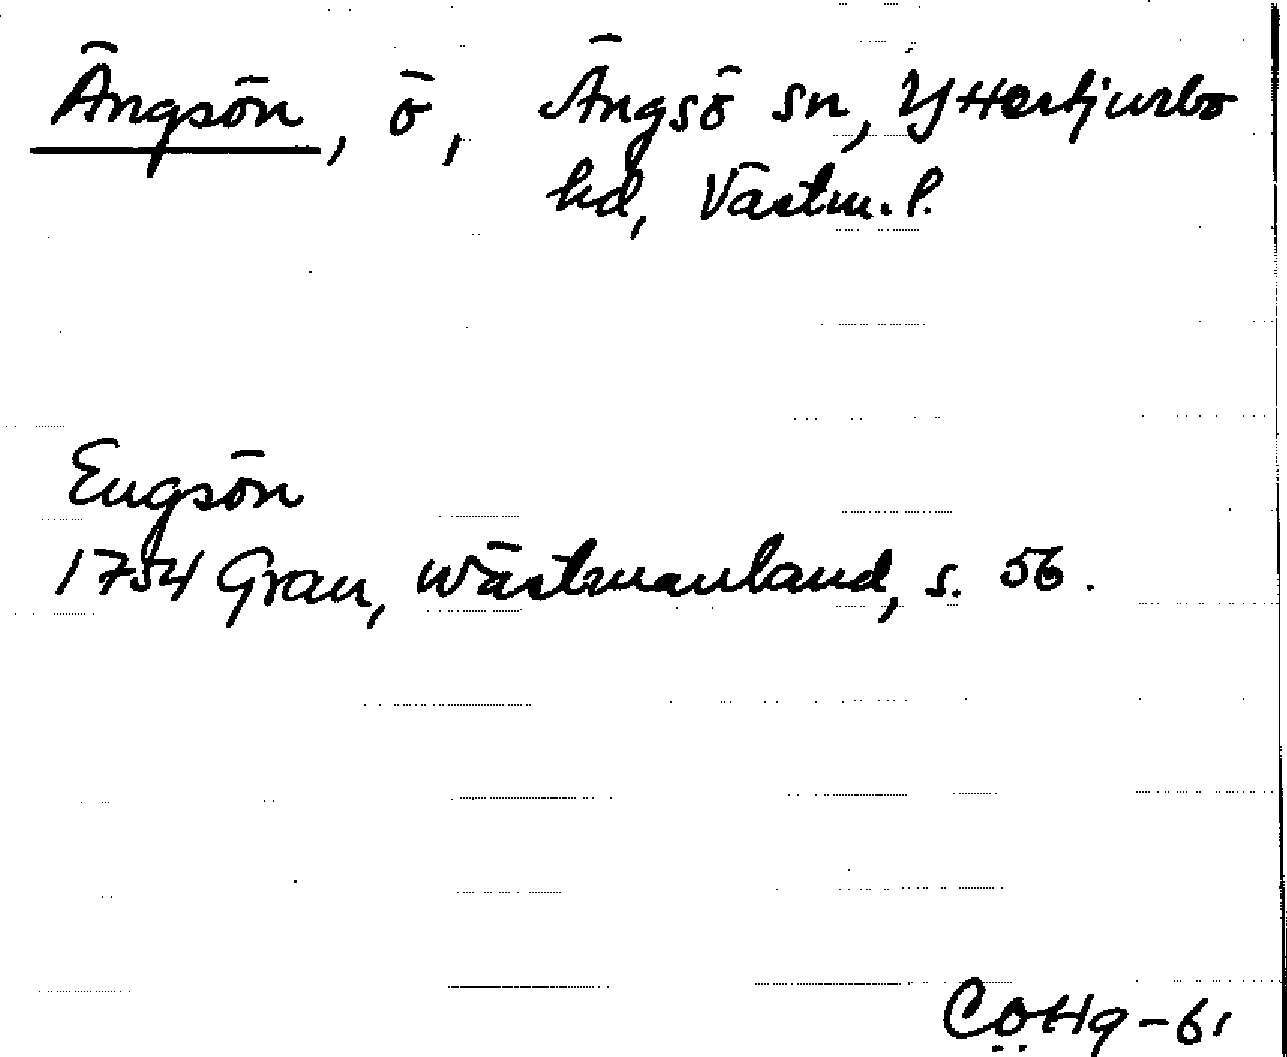 Ängsön, ö, Ängsö sn, Yttertjurbo
hd, Västm. l.
Engsön
1754 Grau, Wästmanland, s. 56.
CöHg-61